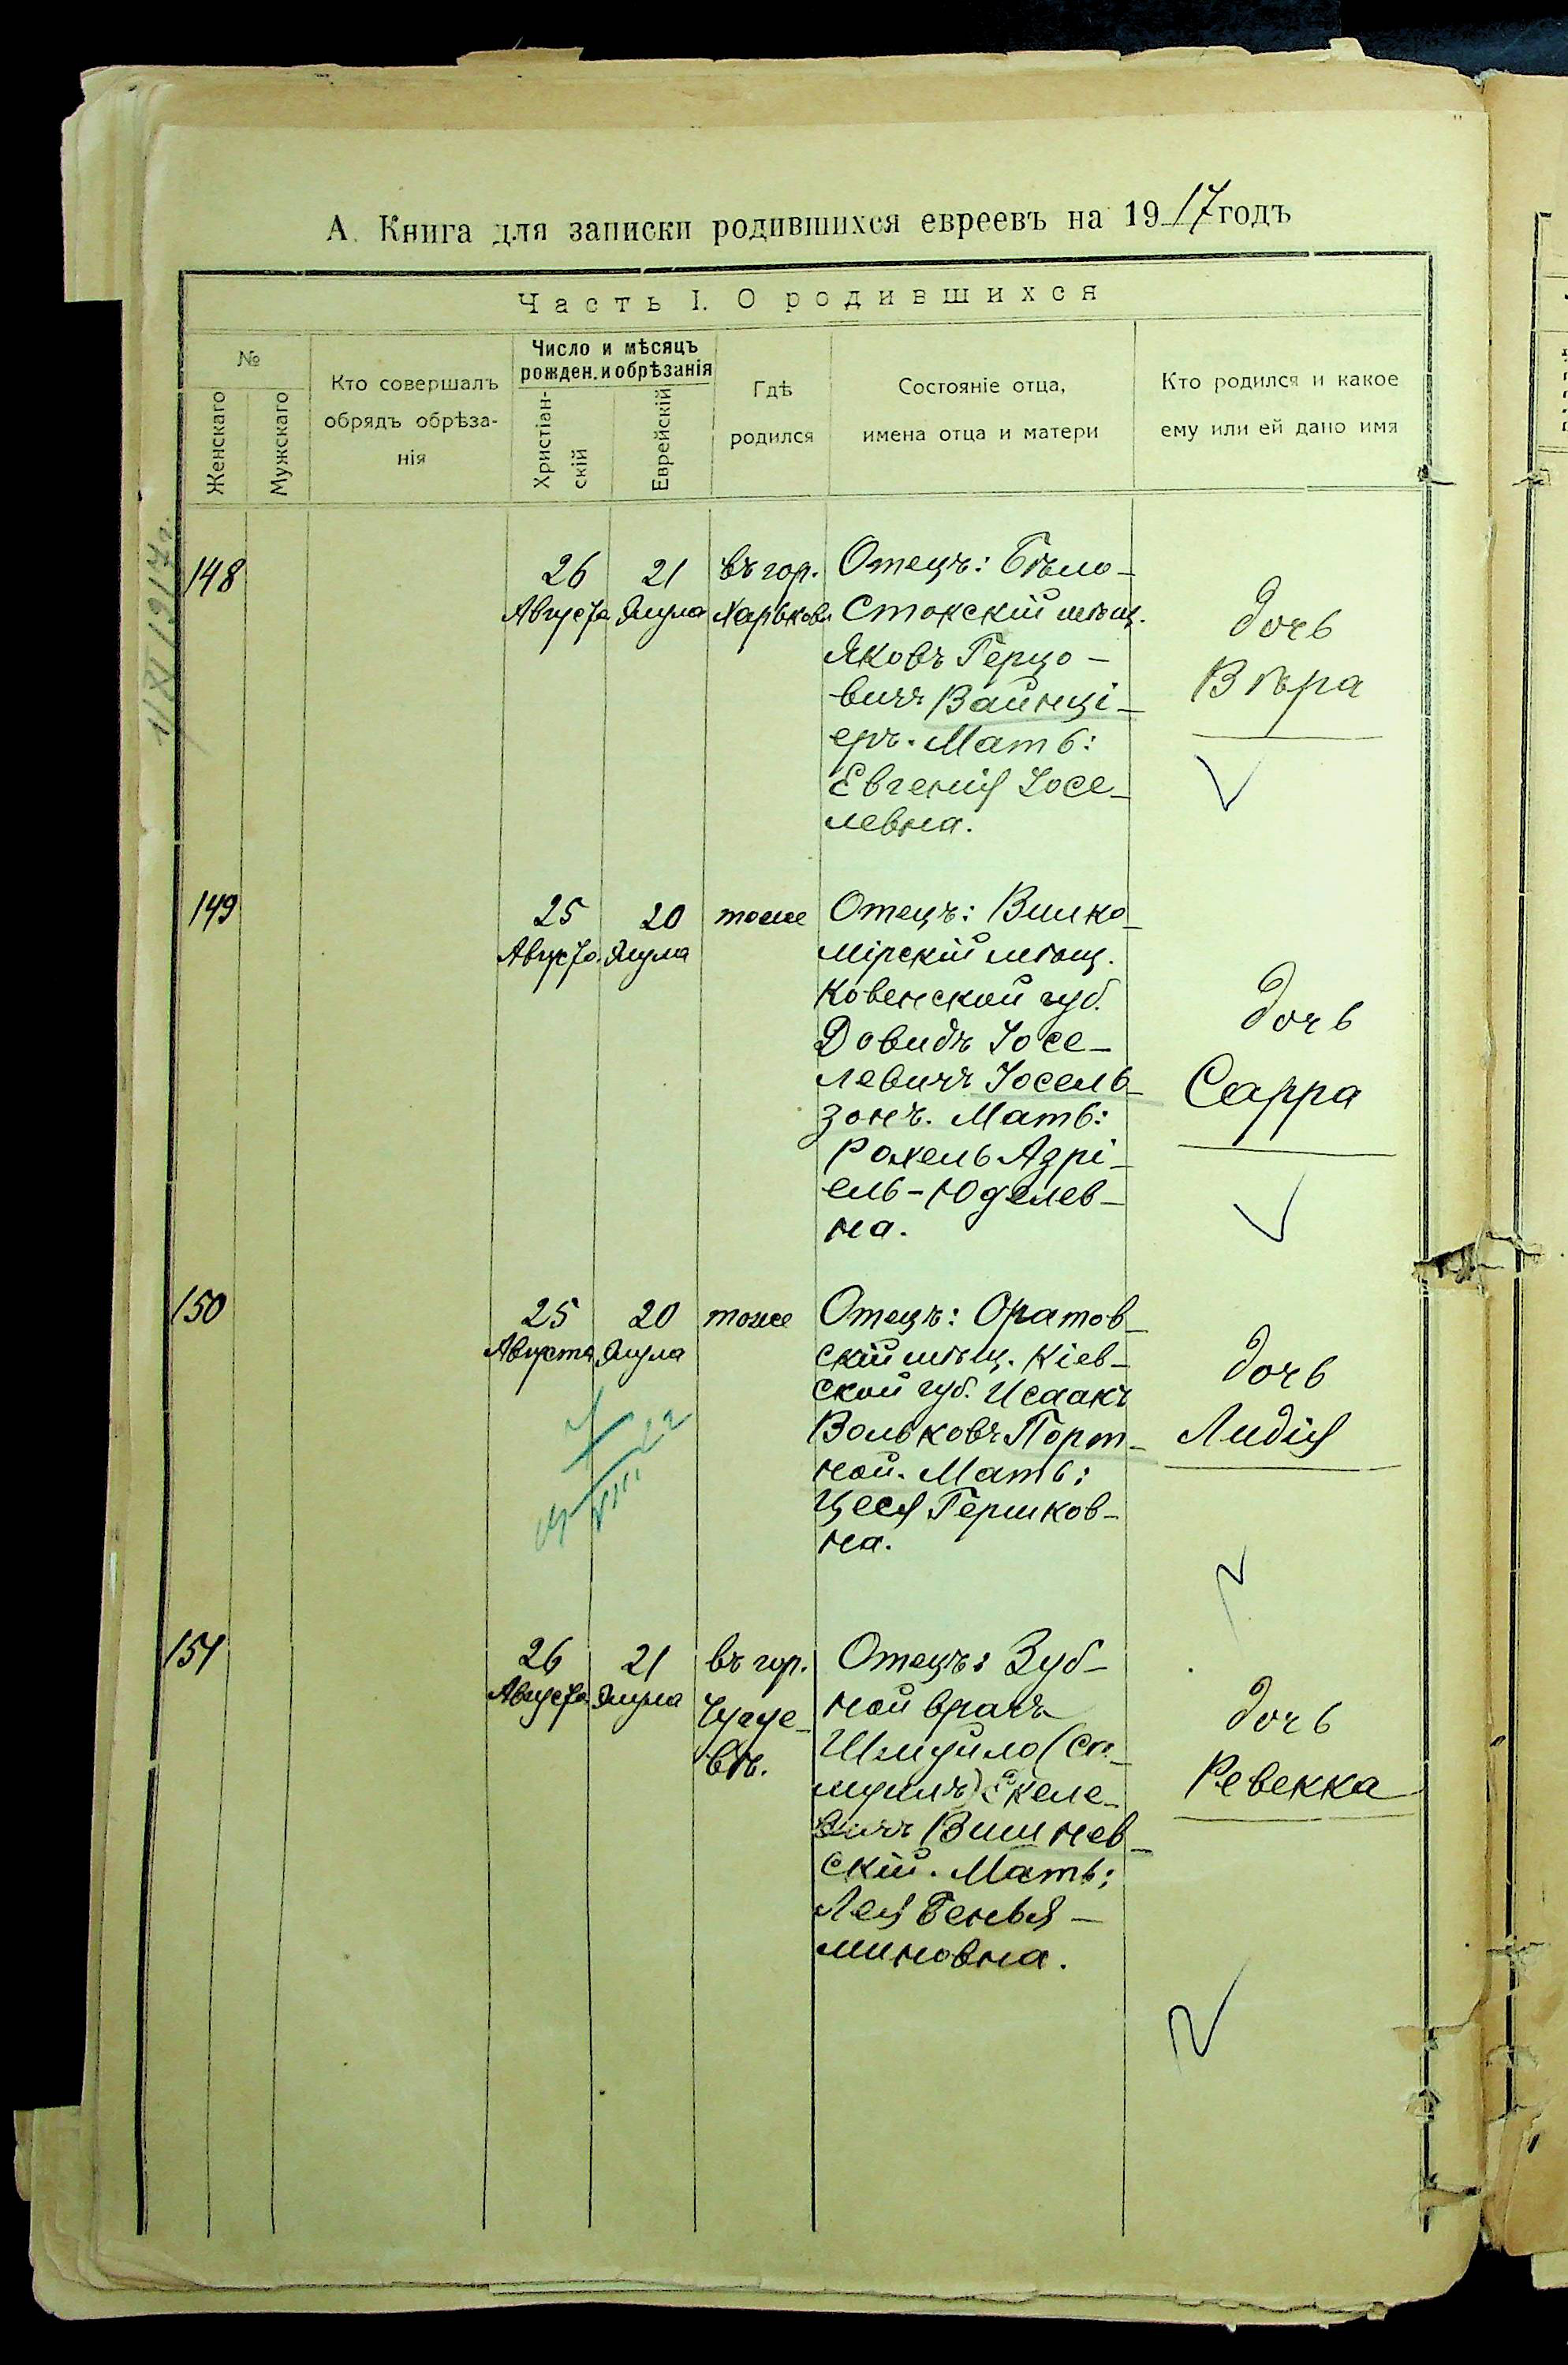 А. Книга для записки родившихся евреевъ на 1917 годъ
Часть I. О родившихся
№
Женскаго
Мужскаго
Кто совершалъ
обрядъ обрѣза-
нія
Число и мѣсяцъ
рожден. и обрѣзанія
Христіан-
скій
Еврейскій
Гдѣ
родился
Состояніе отца,
имена отца и матери
Кто родился и какое
ему или ей дано имя
1/XI 1917 г.
148
26
Августа
21
Элула
въ гор.
Харьковѣ
Отецъ: Бѣло-
стокскій мѣщ.
Яковъ Герцо-
вичъ Вайнці-
еръ. Мать:
Евгенія Іосе-
левна.
дочь
Вѣра
149
25
Августа
20
Элула
тоже
Отецъ: Вилко-
мірскій мѣщ.
Ковенской губ.
Довидъ Іосе-
левичъ Іосель-
зонъ. Мать:
Рохель Азрі-
ель-Юделев-
на.
дочь
Сарра
150
25
Августа
20
Элула
тоже
Отецъ: Оратов-
скій мѣщ. Кіев-
ской губ. Исаакъ
Вольковъ Порт-
ной. Мать:
Цеся Гершков-
на.
дочь
Лидія
151
26
Августа
21
Элула
въ гор.
Чугуе-
вѣ.
Отецъ: Зуб-
ной врачъ
Шмуйло (Са-
муилъ) Екеле-
вичъ Вишнев-
скій. Мать:
Лея Бенья-
миновна.
дочь
Ревекка